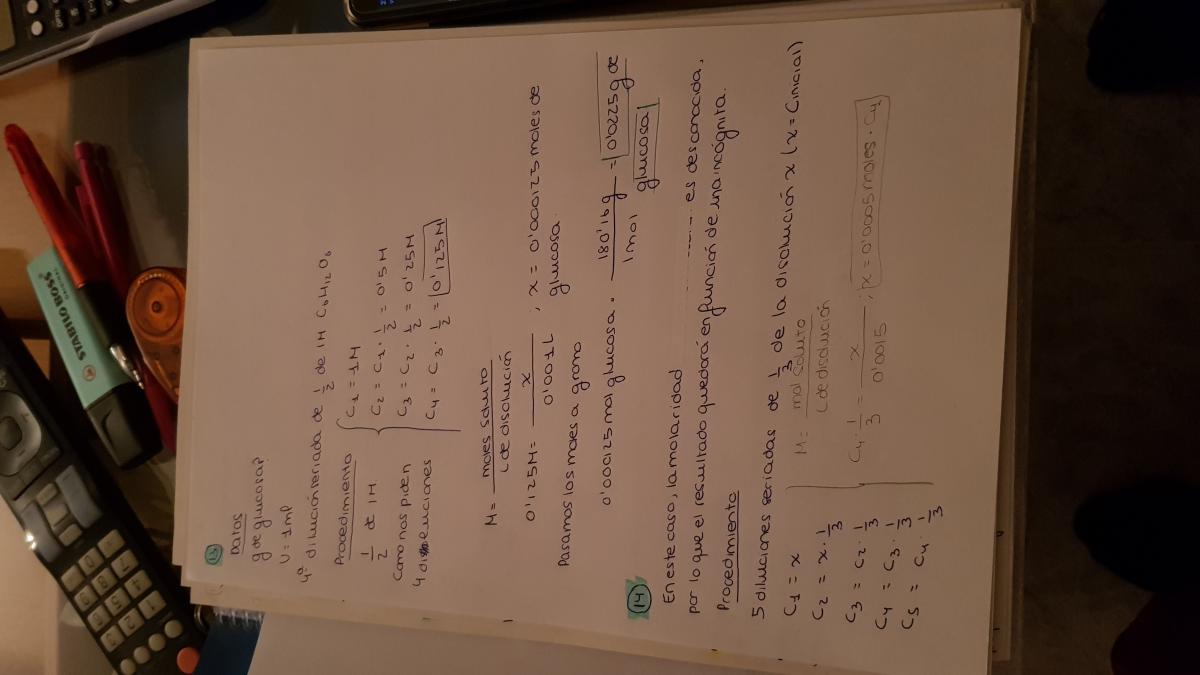 13
Datos
g de glucosa?
V = 1ml
4ª dilución seriada de 1/2 de 1M C6H12O6
Procedimiento
1/2 de 1M
Como nos piden
4 diluciones
C1 = 1M
C2 = C1 · 1/2 = 0'5M
C3 = C2 · 1/2 = 0'25M
C4 = C3 · 1/2 = 0'125M
M = moles soluto / L de disolución
0'125M = x / 0'001L ; x = 0'000125 moles de
glucosa.
Pasamos los moles a gramo
0'000125 mol glucosa · 180'16g / 1mol = 0'0225g de
glucosa
14
En este caso, la molaridad es desconocida,
por lo que el resultado quedará en función de una incógnita.
Procedimiento
5 diluciones seriadas de 1/3 de la disolución x (x = Cinicial)
C1 = x
C2 = x · 1/3
C3 = C2 · 1/3
C4 = C3 · 1/3
C5 = C4 · 1/3
M = mol soluto / L de disolución
C4 · 1/3 = x / 0'0015 ; x = 0'0005 moles · C4
STABILO BOSS
ORIGINAL